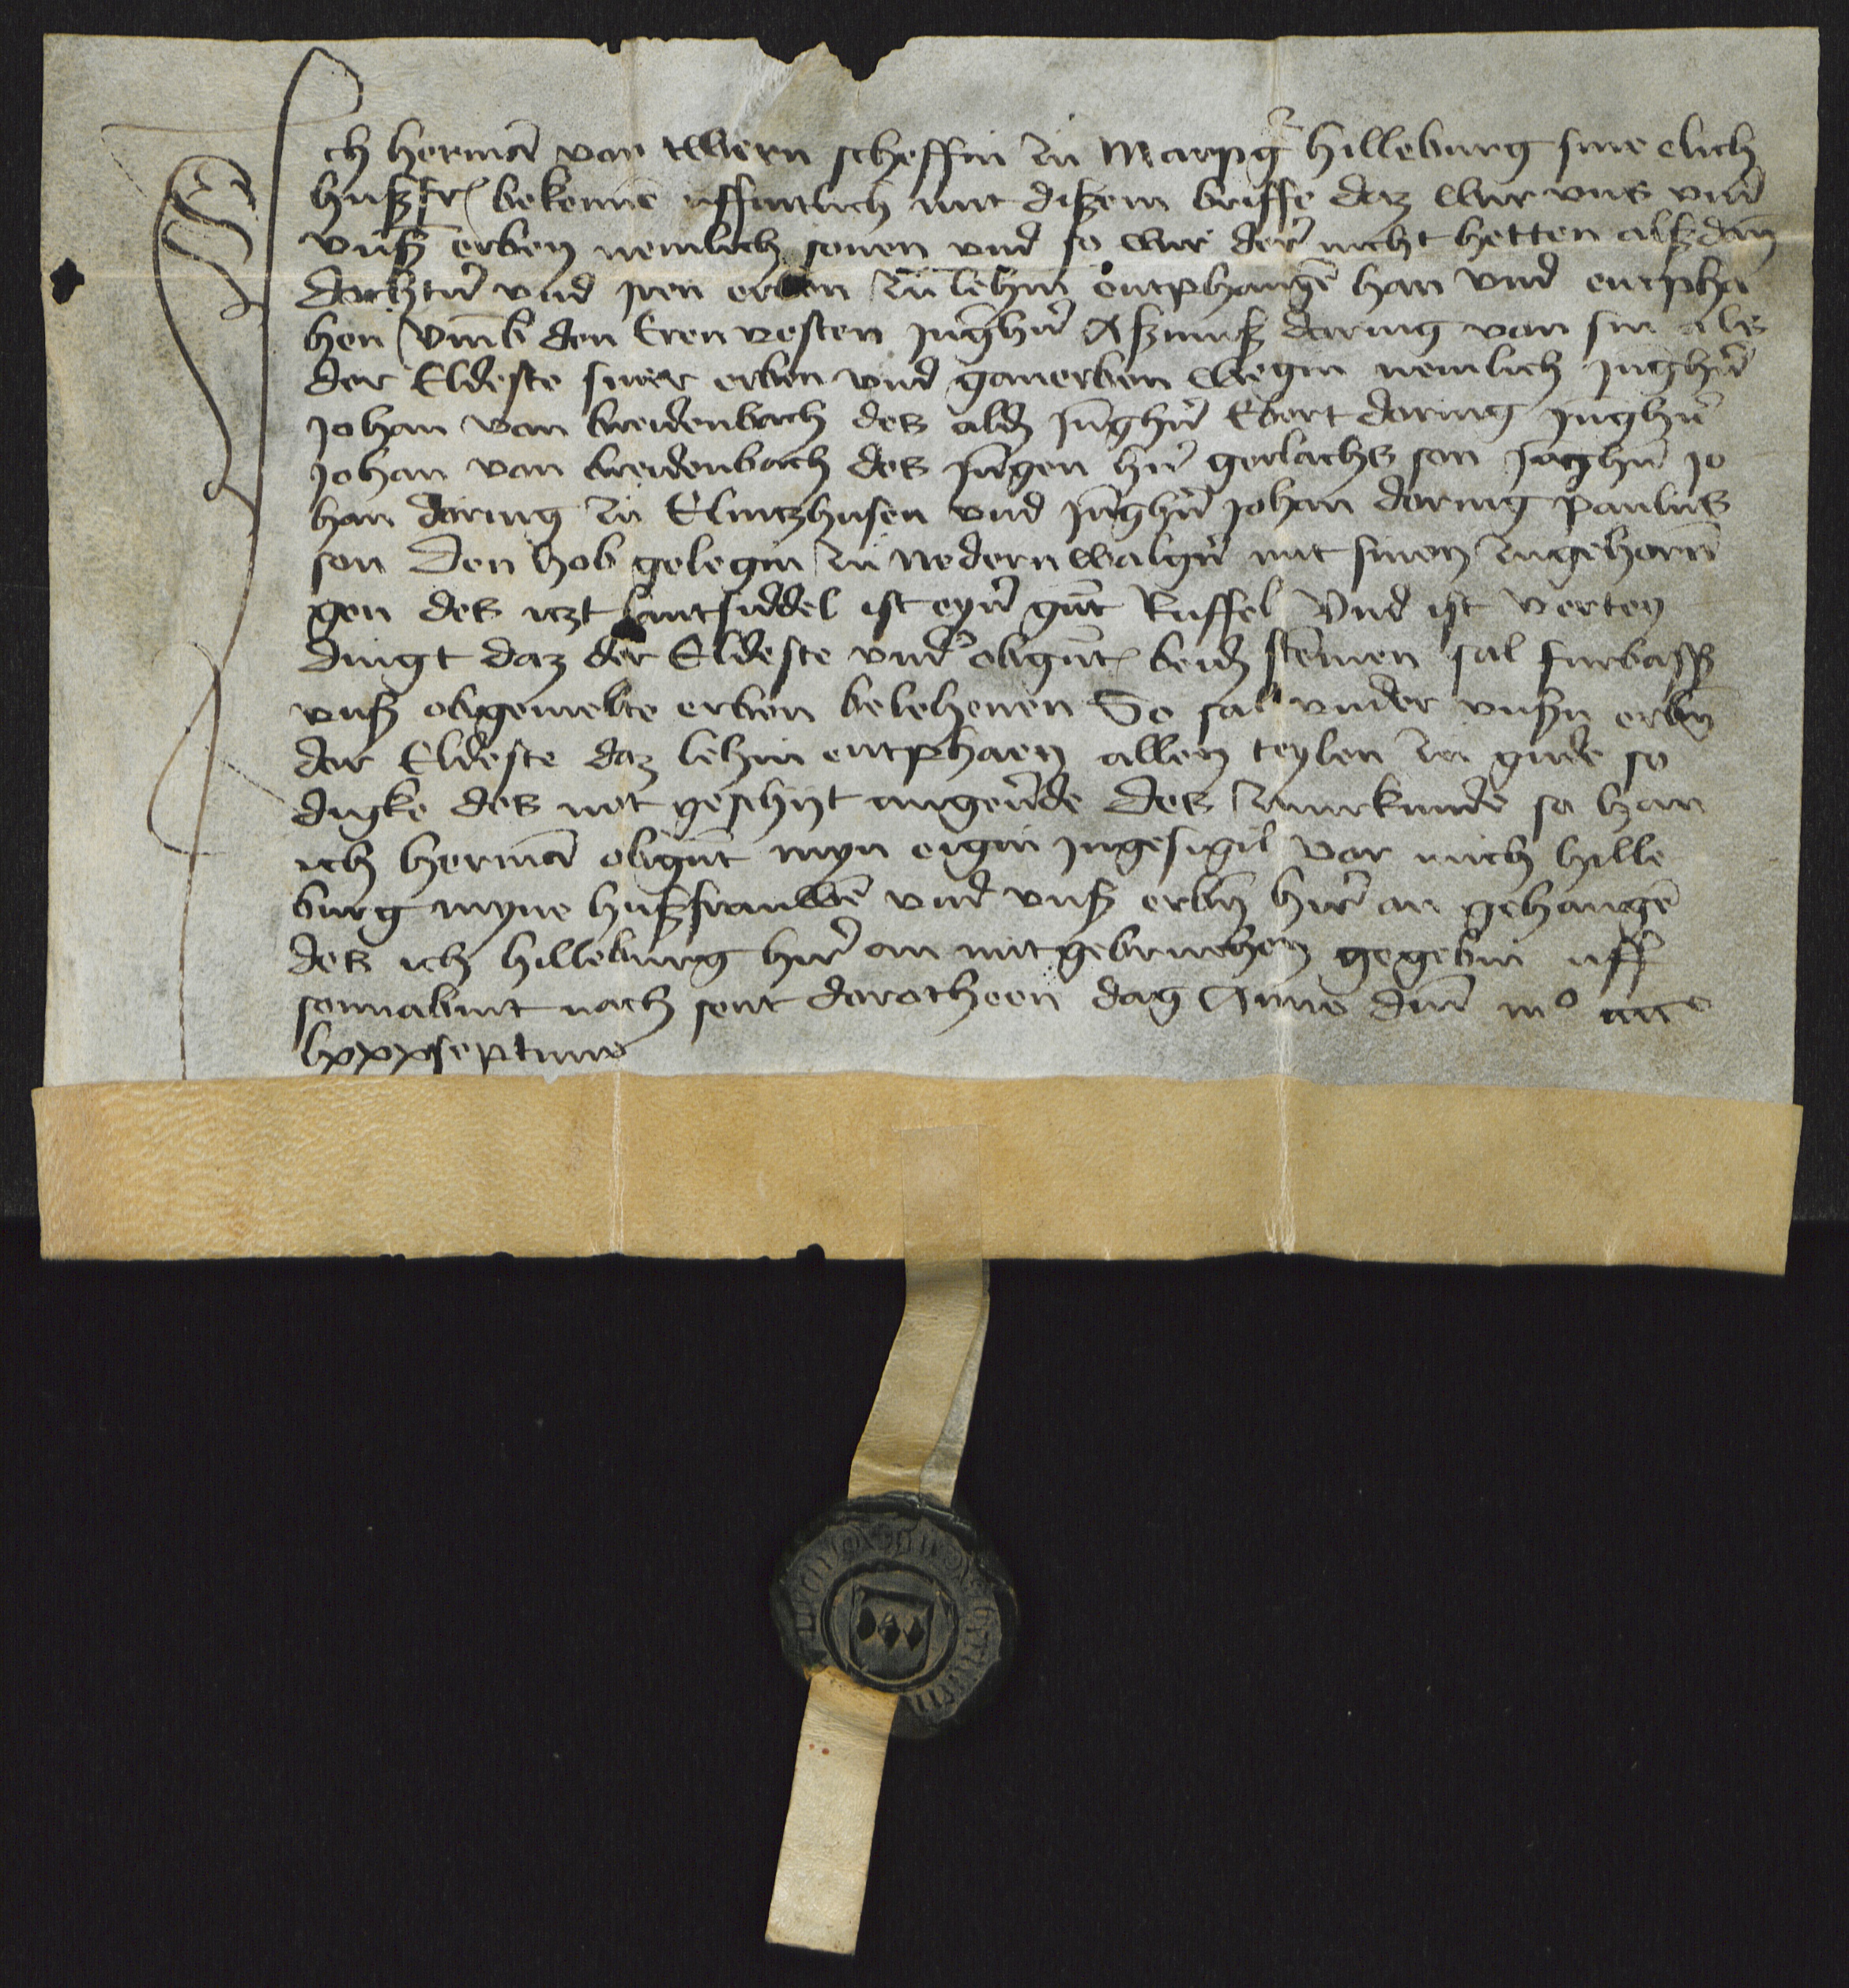 Ich hermā von twern scheffin zu Marpg hilleburg sine elich
hußfr bekennē uffintlich mit dißem briffe daz wir vns vnd
vnß erben nemlich sonen vnd so wir der nicht hetten alßdañ
dochter vnd iren erben zu lehin entphangē han vnd entpha
hen vmb den Eren vesten jūgher Aßmuß doring von sin als
der Eldeste siner erben vnd ganerben wegin nemlich jūgher
johan von breidenbach des ald jūgher Ebert doring jūgher
johan von breidenbach des jūngen her gerlachs son jūgher jo
han doring zu Elintzhusen vnd jūgher johan doring paulus
son den hob gelegin zu nedern walgern mit sinen zugehorū
gen des itzt lantsiddel ist eyner gnt Ruffel Vnd ist vertey
dingt daz der Eldeste vnder obgnt beid stemen sal furbasß
vnß obgemelte erben belehenen So sal vnder vnßn erbn
der Eldeste daz lehin entphaen allen teylen zu gude so
digke des not geschijt angeuerde des zu urkunde so han
ich hermā obgnt myn eigin jngesigil vor mich hille
burg myne hußfrauwē vnd vnß erbn hir an gehangē
des ich hilleburg hir an mit gebruchen gegebin uff
sonnabint nach sent dorotheen dag Anno dm̄ mo cccco
lxxxseptimo